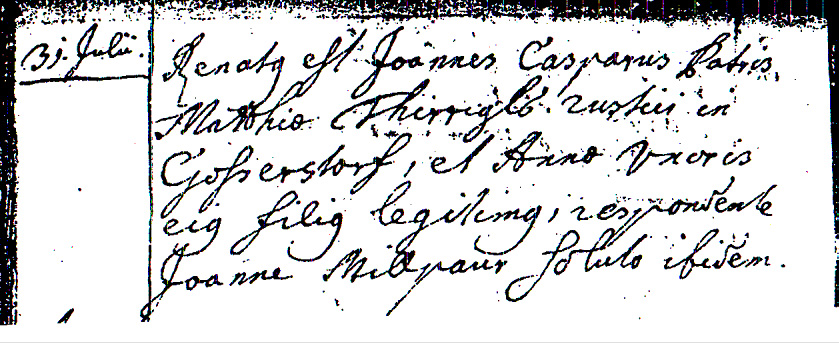 31. Julii. Renatg est Joannes Casparus Patris
Matthiæ Thirrigls rustici in
Gosserstorf, et Annæ Vxoris
eig filig legitimg, respondente
Joanne Millpaur soluto ibidem.